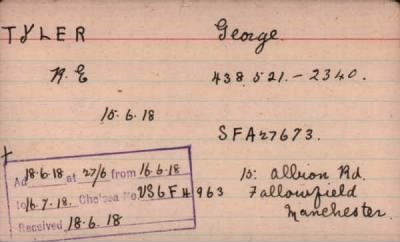 TYLER George.
R.E 438521.-2340.
15.6.18
SFA27673.
Ad 18.6.18 at 27/6 from 16.6.18
to 16.7.18. Chelsea No. USGF 4963
Received 18.6.18
15: Albion Rd.
Fallowfield
Manchester.